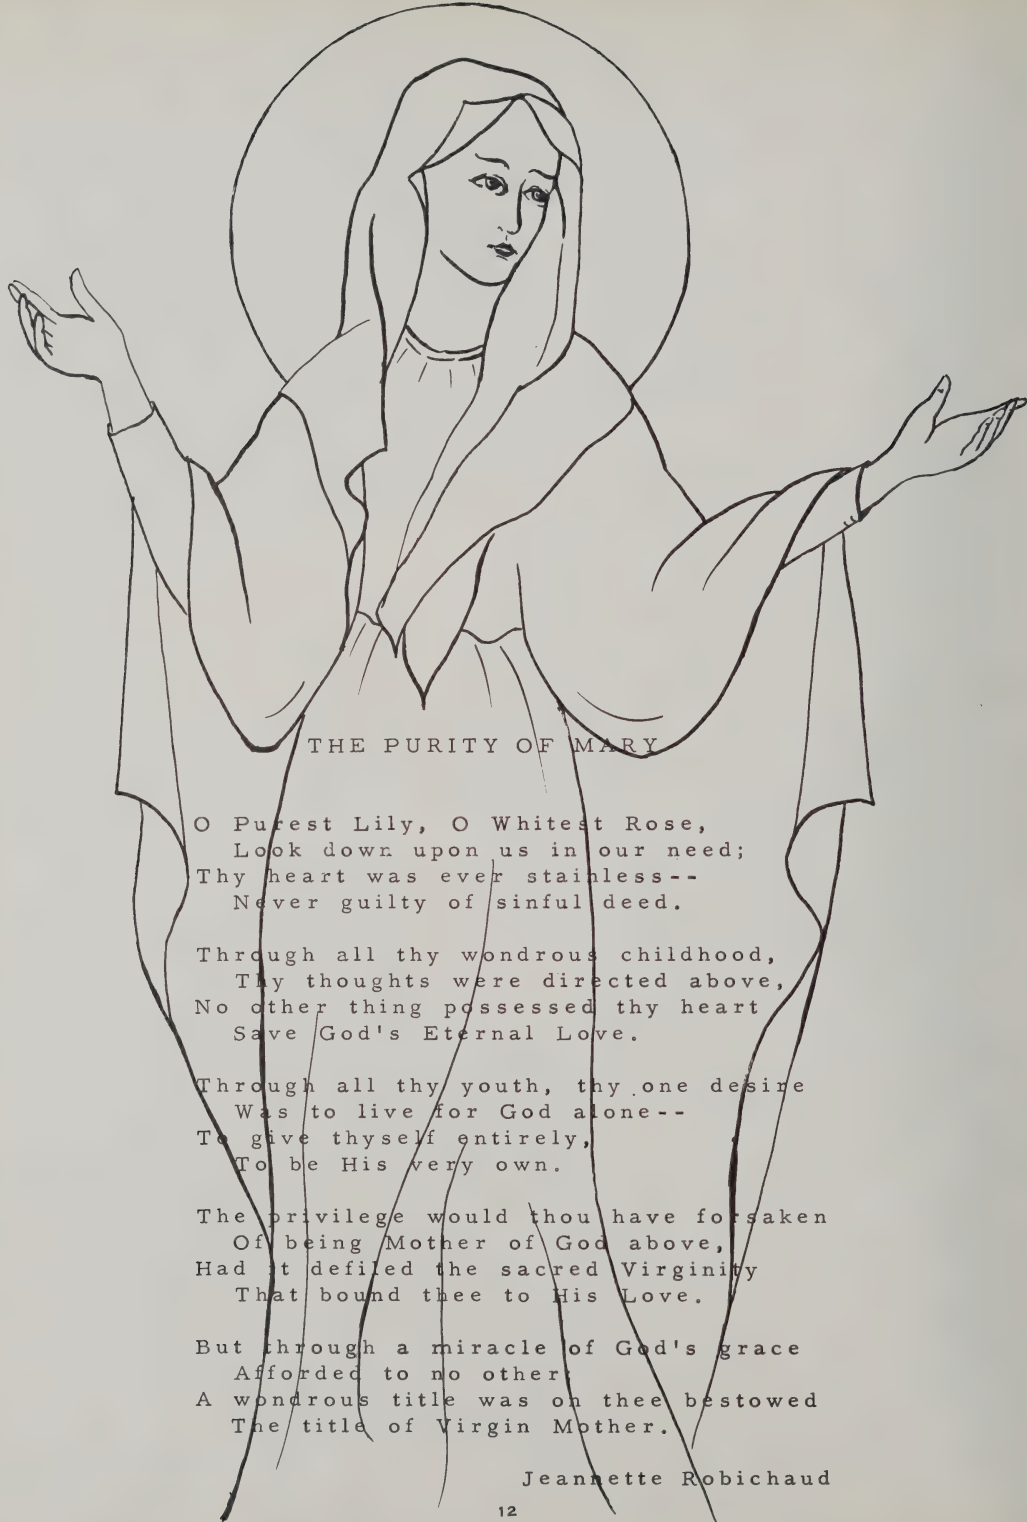 THE PURITY OF MARY
O Purest Lily, O Whitest Rose,
Look down upon us in our need;
Thy heart was ever stainless--
Never guilty of sinful deed.
Through all thy wondrous childhood,
Thy thoughts were directed above,
No other thing possessed thy heart
Save God's Eternal Love.
Through all thy youth, thy one desire
Was to live for God alone--
To give thyself entirely,
To be His very own.
The privilege would thou have forsaken
Of being Mother of God above,
Had it defiled the sacred Virginity
That bound thee to His Love.
But through a miracle of God's grace
Afforded to no other;
A wondrous title was on thee bestowed
The title of Virgin Mother.
Jeannette Robichaud
12